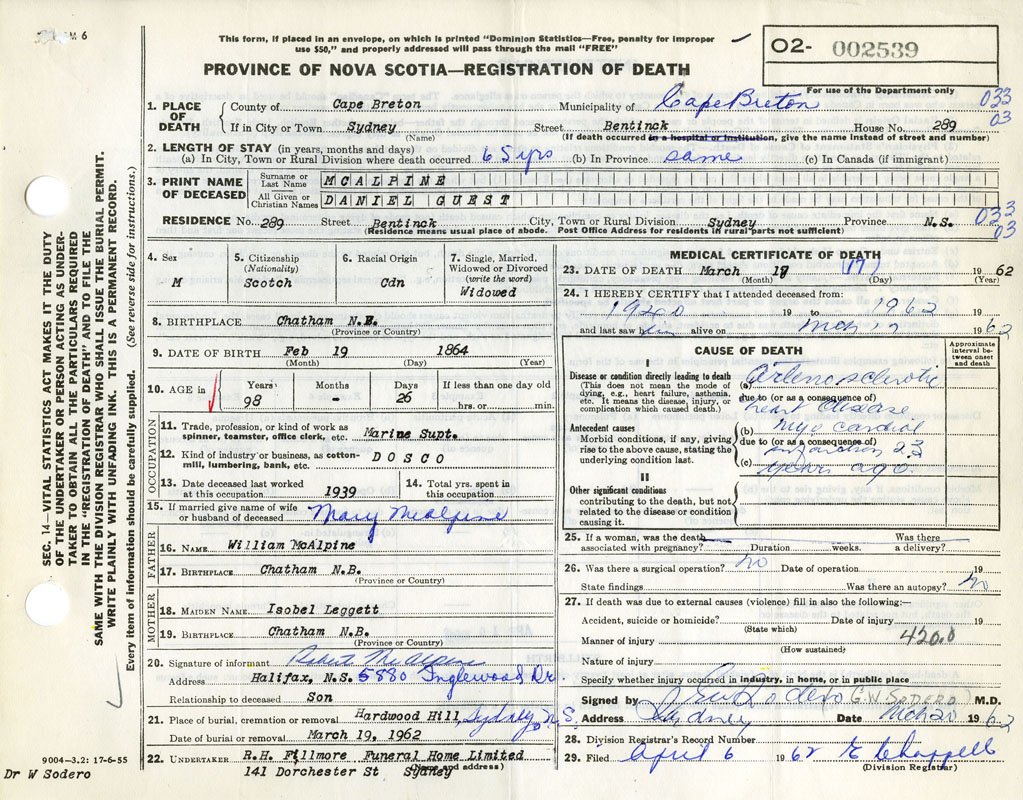 M 6
This form, if placed in an envelope, on which is printed “Dominion Statistics—Free, penalty for improper
use $50,” and properly addressed will pass through the mail “FREE”
O2- 002539
PROVINCE OF NOVA SCOTIA—REGISTRATION OF DEATH
For use of the Department only
1. PLACE OF DEATH { County of Cape Breton Municipality of Cape Breton 033
If in City or Town Sydney Street Bentinck House No. 289 03
(Name) (If death occurred in a hospital or institution, give the name instead of street and number)
2. LENGTH OF STAY (in years, months and days)
(a) In City, Town or Rural Division where death occurred 65 yrs (b) In Province same (c) In Canada (if immigrant)
3. PRINT NAME OF DECEASED { Surname or Last Name MCALPINE
All Given or Christian Names DANIEL GUEST
RESIDENCE No. 289 Street Bentinck City, Town or Rural Division Sydney Province N.S. 033
03
(Residence means usual place of abode. Post Office Address for residents in rural parts not sufficient)
4. Sex
M
5. Citizenship
(Nationality)
Scotch
6. Racial Origin
Cdn
7. Single, Married,
Widowed or Divorced
(write the word)
Widowed
8. BIRTHPLACE Chatham N.B.
(Province or Country)
9. DATE OF BIRTH Feb 19 1864
(Month) (Day) (Year)
10. AGE in Years 98 Months - Days 26 If less than one day old
hrs. or min.
OCCUPATION
11. Trade, profession, or kind of work as
spinner, teamster, office clerk, etc. Marine Supt.
12. Kind of industry or business, as cotton-
mill, lumbering, bank, etc. DOSCO
13. Date deceased last worked
at this occupation 1939
14. Total yrs. spent in
this occupation
15. If married give name of wife
or husband of deceased Mary McAlpine
FATHER
16. NAME William McAlpine
17. BIRTHPLACE Chatham N.B.
(Province or Country)
MOTHER
18. MAIDEN NAME Isobel Leggett
19. BIRTHPLACE Chatham N.B.
(Province or Country)
20. Signature of informant Robert McAlpine
Address Halifax, N.S. 5880 Inglewood Dr.
Relationship to deceased Son
21. Place of burial, cremation or removal Hardwood Hill, Sydney, N.S.
Date of burial or removal March 19, 1962
22. UNDERTAKER R.H. Fillmore Funeral Home Limited
(Name and address)
141 Dorchester St Sydney
MEDICAL CERTIFICATE OF DEATH
23. DATE OF DEATH March 17 (17) 19 62
(Month) (Day) (Year)
24. I HEREBY CERTIFY that I attended deceased from:
1920 19 to 1962 19
and last saw him alive on Mch 17 1962
CAUSE OF DEATH
Approximate
interval be-
tween onset
and death
I
Disease or condition directly leading to death
(This does not mean the mode of
dying, e.g., heart failure, asthenia,
etc. It means the disease, injury, or
complication which caused death.)
(a) Arteriosclerotic
due to (or as a consequence of)
heart disease
Antecedent causes
Morbid conditions, if any, giving
rise to the above cause, stating the
underlying condition last.
(b) Myocardial
due to (or as a consequence of)
infarction 23
(c) years ago.
II
Other significant conditions
contributing to the death, but not
related to the disease or condition
causing it.
25. If a woman, was the death Was there
associated with pregnancy? Duration weeks. a delivery?
26. Was there a surgical operation? no Date of operation 19
State findings Was there an autopsy? no
27. If death was due to external causes (violence) fill in also the following:—
Accident, suicide or homicide? Date of injury 19
(State which)
Manner of injury 420.0
(How sustained)
Nature of injury
Specify whether injury occurred in industry, in home, or in public place
Signed by G W Sodero (G.W. SODERO) M.D.
Address Sydney Date Mch 20 1962
28. Division Registrar's Record Number
29. Filed April 6 1962 E Chappell
(Division Registrar)
SEC. 14—VITAL STATISTICS ACT MAKES IT THE DUTY
OF THE UNDERTAKER OR PERSON ACTING AS UNDER-
TAKER TO OBTAIN ALL THE PARTICULARS REQUIRED
IN THE “REGISTRATION OF DEATH” AND TO FILE THE
SAME WITH THE DIVISION REGISTRAR WHO SHALL ISSUE THE BURIAL PERMIT.
WRITE PLAINLY WITH UNFADING INK. THIS IS A PERMANENT RECORD.
Every item of information should be carefully supplied. (See reverse side for instructions.)
9004—3.2: 17-6-55
Dr W Sodero